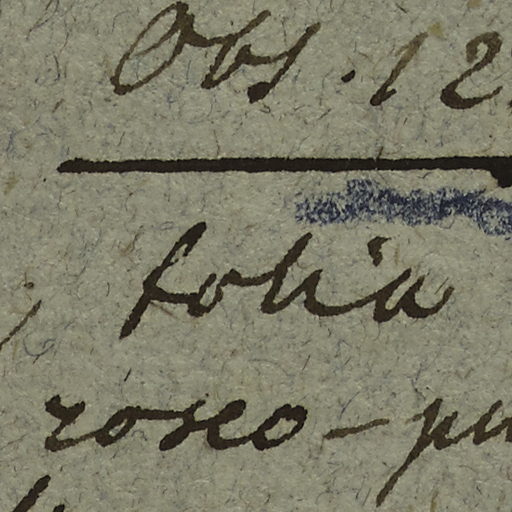 Obs. 12
folia
roseo-pu